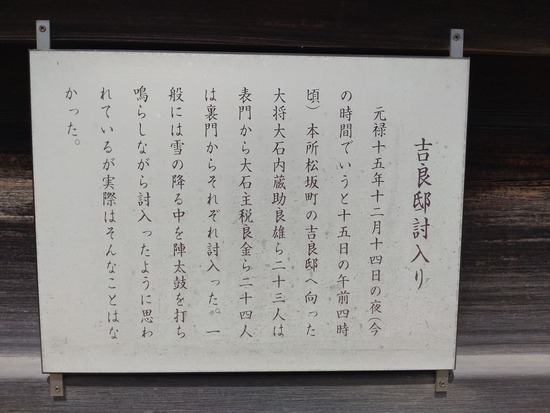 吉良邸討入り
元禄十五年十二月十四日の夜(今
の時間でいうと十五日の午前四時
頃)本所松坂町の吉良邸へ向った
大将大石内蔵助良雄ら二十三人は
表門から大石主税良金ら二十四人
は裏門からそれぞれ討入った。一
般には雪の降る中を陣太鼓を打ち
鳴らしながら討入ったように思わ
れているが実際はそんなことはな
かった。